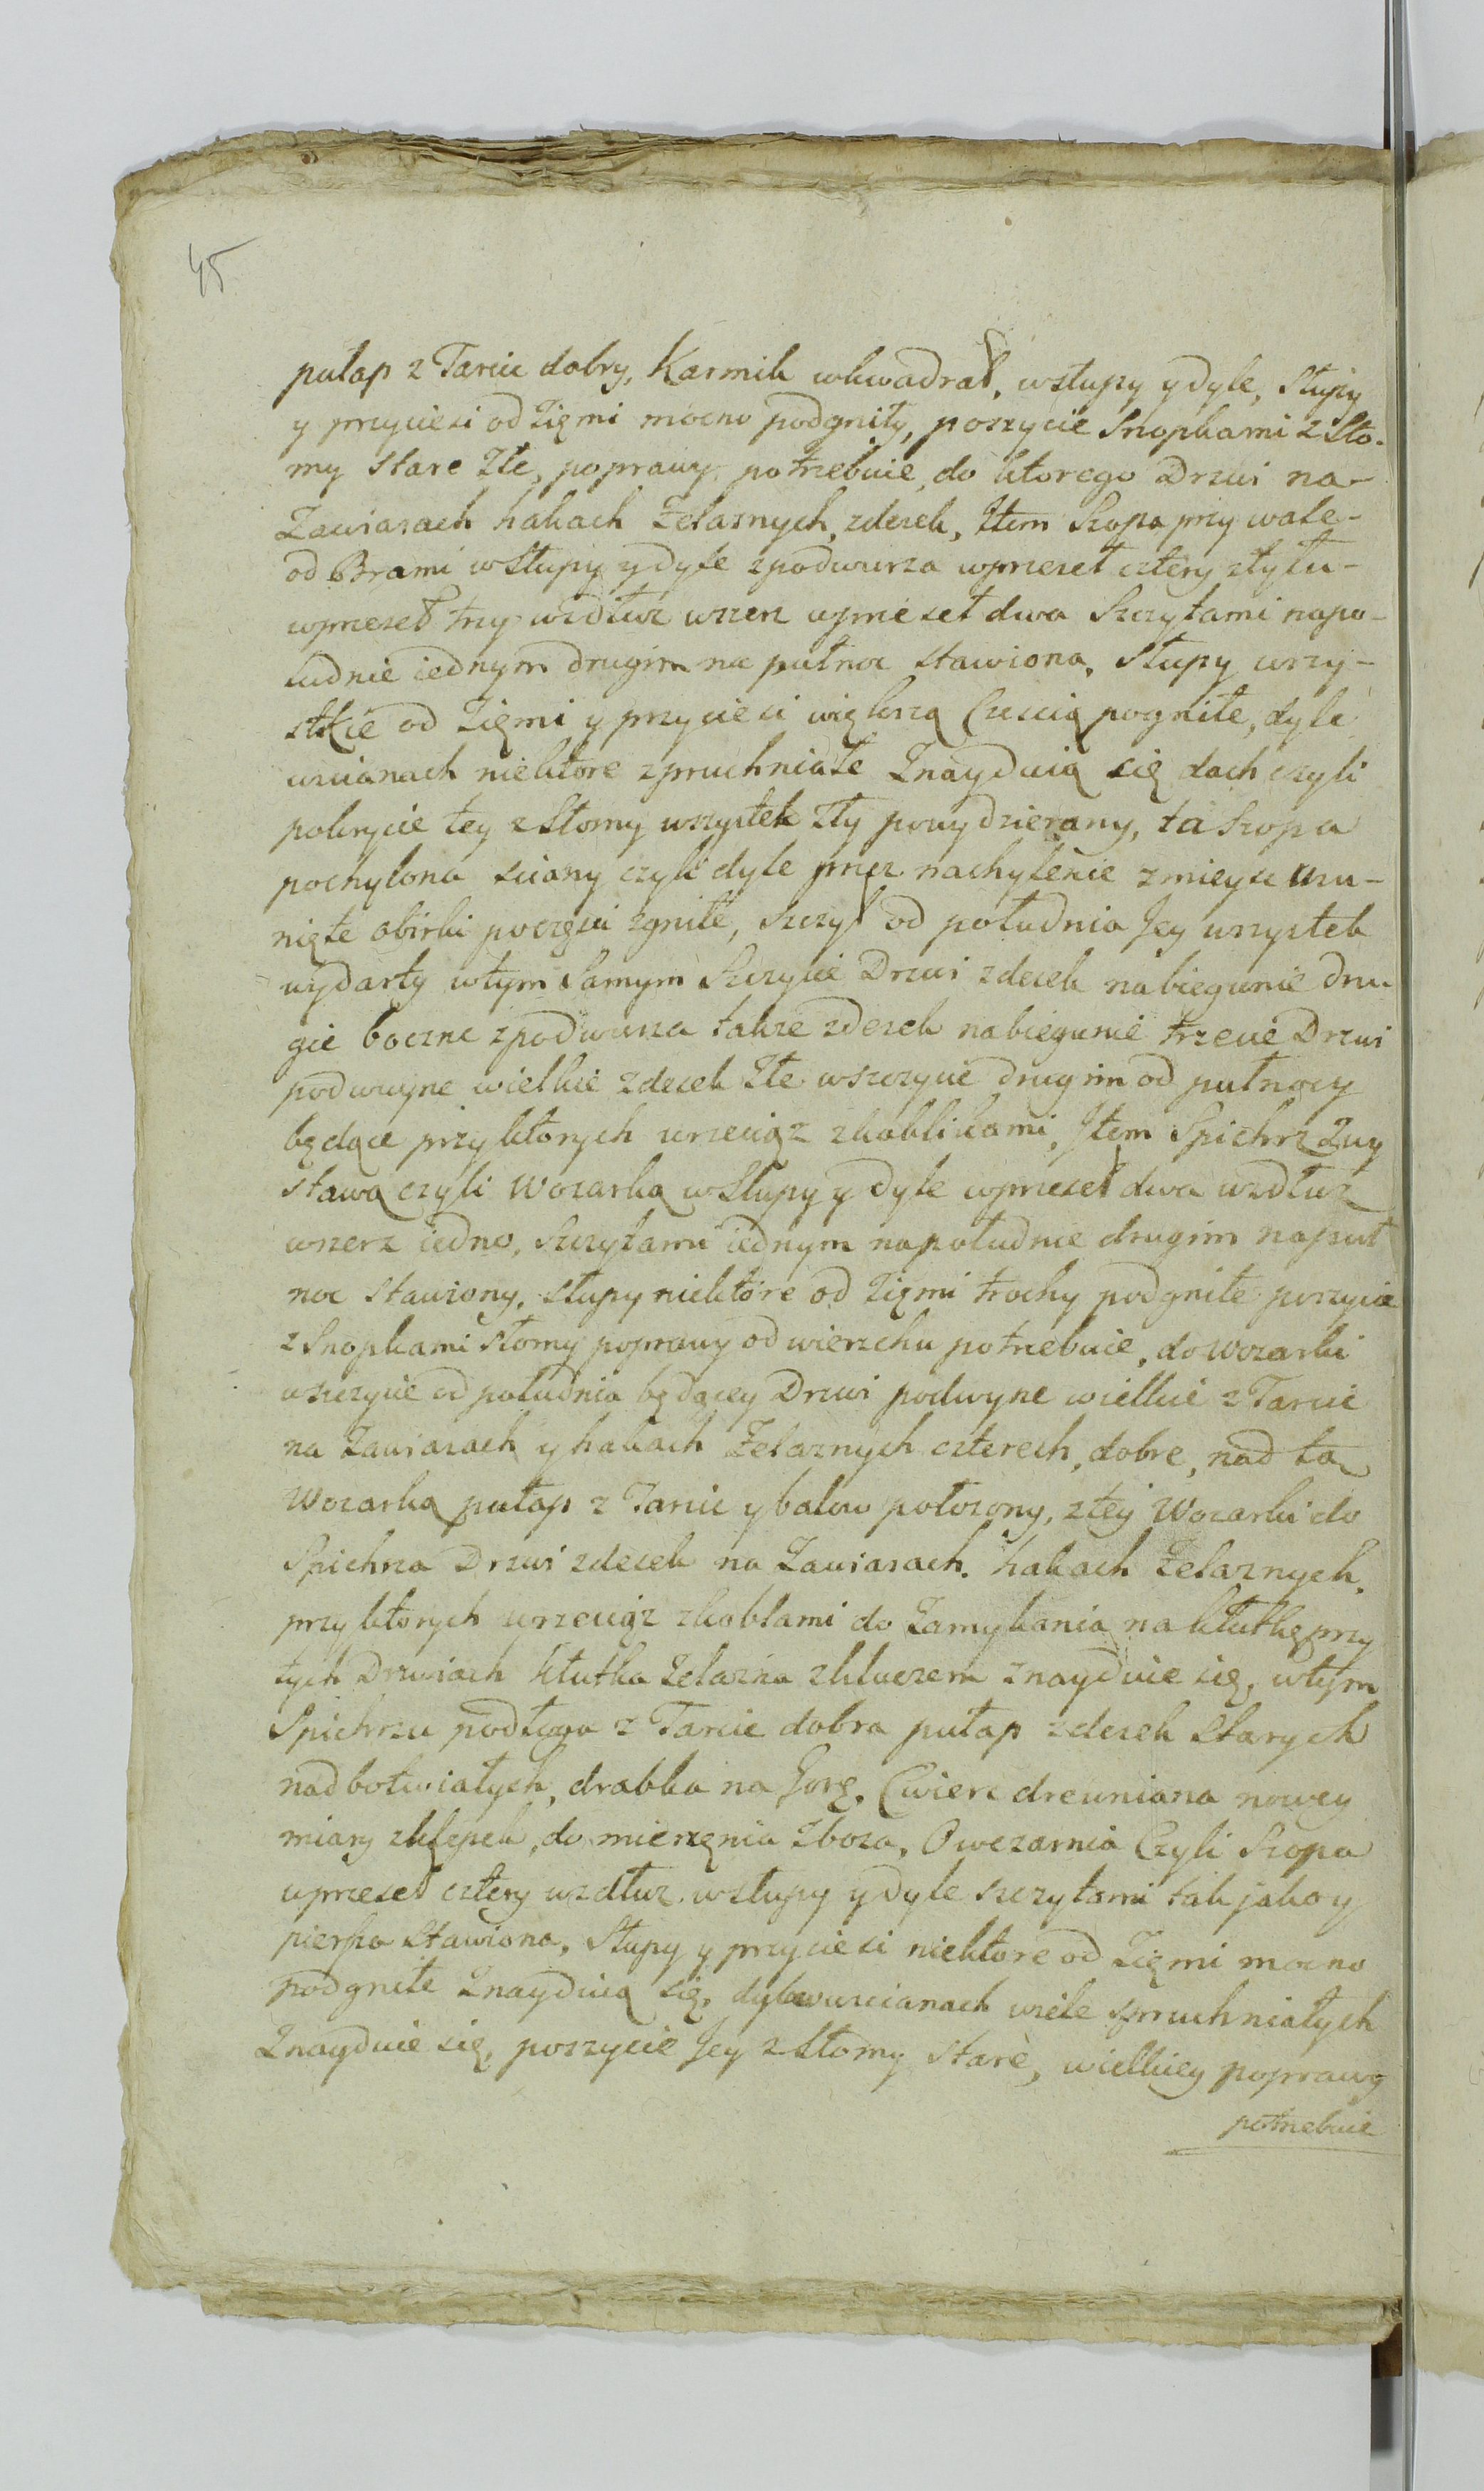 45
pułap z Tarcic dobry, Karmik wkwadrat, wsłupy y dyle, Słupy
y przyciesi od Zięmi mocno podgniły, poszycie Snopkami z Sło-
my stare Złe, poprawy potrzebuie, do ktorego Drzwi na-
Zawiasach hakach Zelaznych, zdesek, Item Szopa przy wale-
od Brami wsłupy y dyle zpodwurza wprzeseł cztery ztyłu-
wprzeseł trzy wzdłuz wszerz wprzeseł dwa Szczytami napo-
łudnie iednym drugim na pułnoc stawiona, Słupy wszy-
stkie od Zięmi y przyciesi większą Częscią pogniłe, dyle
wscianach niektore zpruchniałe Znayduią się dach czyli
pokrycie tey z Słomy wszystek Zły powydzierany, ta Szopa
pochylona sciany czyli dyle przez nachylenie zmieysc usu-
nięte obirki poczęsci zgniłe, Szczyt od południa Jey wszystek
wydarty wtym Samym Szczycie Drzwi zdesek nabiegunie dru-
gie boczne zpodwurza takze zdesek nabiegunie trzecie Drzwi
podwuyne wielkie zdesek Złe wszczycie drugim od pułnocy
będące przyktorych wrzeciąz zkoblikami, Item Spichrz Zwy
stawą czyli Wozarką wSłupy y dyle wprzeseł dwa wzdłuz
wszerz iedno, Szczytami iednym napołudnie drugim napuł
noc stawiony, słupy niektóre od Zięmi trochy podgniłe poszycie
z Snopkami Słomy poprawy od wierzchu potrzebuie, do Wozarki
wszczycie od południa będącey Drzwi podwuyne wielkie z Tarcic
na Zawiasach y hakach Zelaznych czterech, dobre, nad ta
Wozarką pułap z Tarcic y balow połozony, ztey Wozarki do
Spichrza Drzwi zdesek na Zawiasach, hakach Zelaznych,
przyktorych wrzeciąz zkoblami do Zamykania na kłutkę przy
tych Drzwiach kłutka Zelazna zkluczem znayduie się, wtym
Spichrzu podłoga z Tarcic dobra pułap zdesek Starych
nadbotwiałych, drabka na Gorę, Cwierc drewniana nowey
miary zklepek, do mierzęnia Zboza, Owczarnia Czyli Szopa
wprzeseł cztery wzdłuz wsłupy y dyle szczytami tak jako y
pierwsza stawiona, Słupy y przyciesi niektore od Zięmi mocno
podgniłe Znayduią się, dylow wscianach wiele spruchniałych
Znayduie się, poszycie Jey z Słomy Stare, wielkiey poprawy
potrzebuie